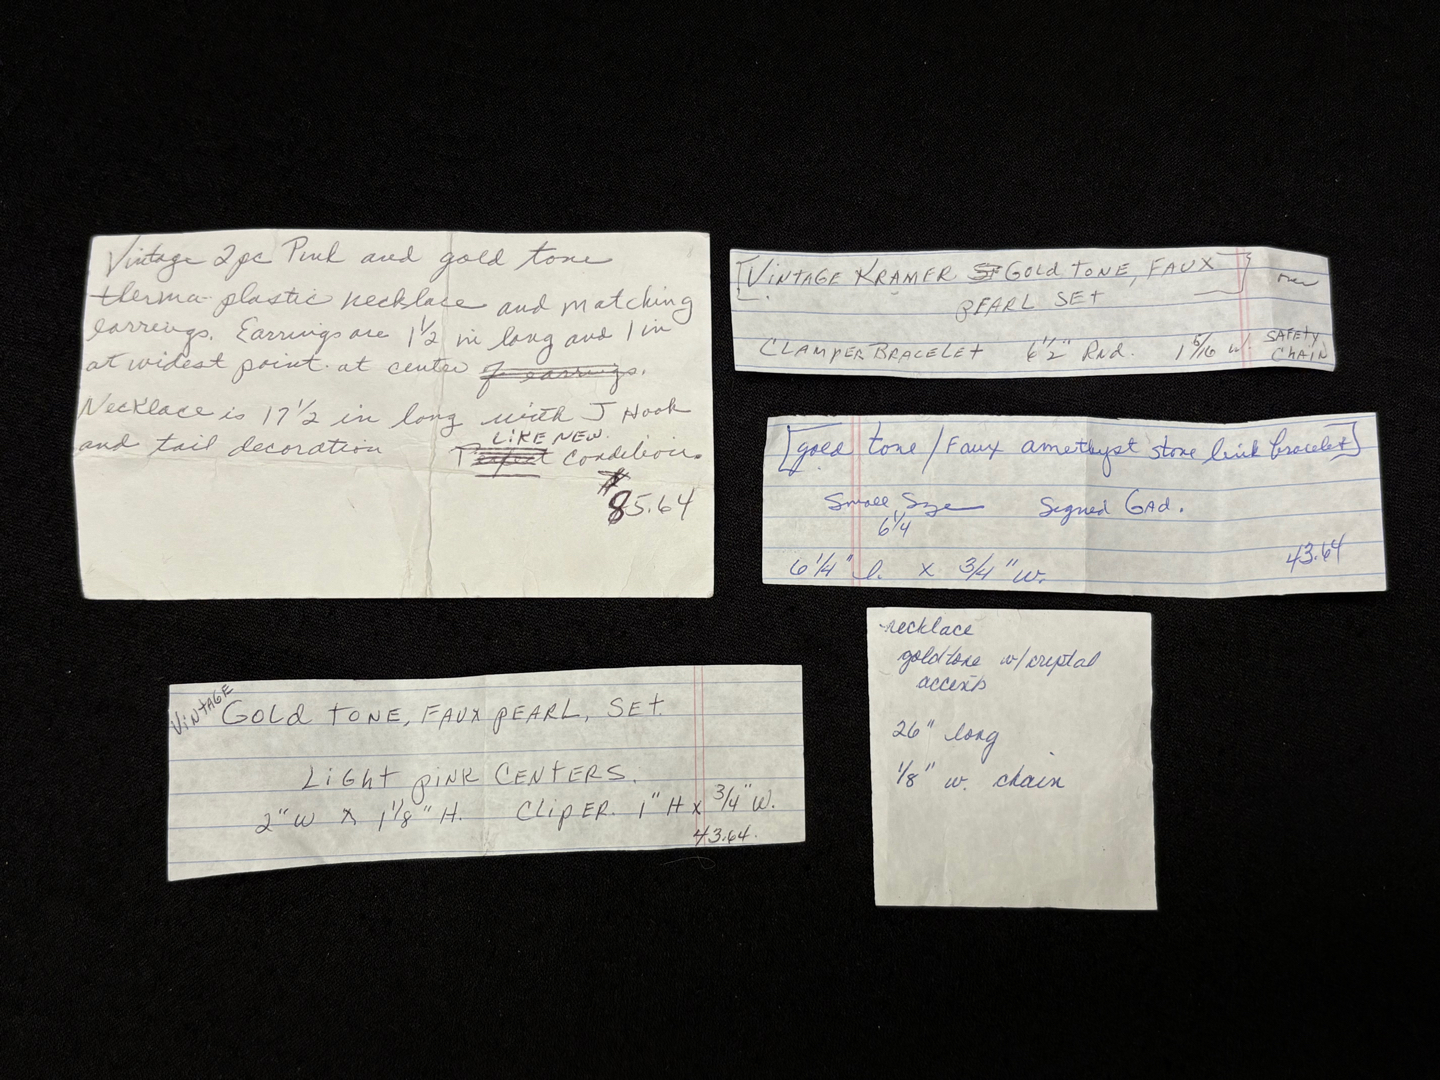 Vintage 2pc Pink and gold tone
therma-plastic necklace and matching
earrings. Earrings are 1 1/2 in long and 1 in
at widest point at center of earrings.
Necklace is 17 1/2 in long with J Hook
and tail decoration LIKE NEW Condition.
$85.64
[VINTAGE KRAMER GOLD TONE, FAUX
PEARL SET]
over
CLAMPER BRACELET 6 1/2" RND. 1 5/16 w SAFETY
CHAIN
[gold tone/Faux amethyst stone link bracelet]
Small Size Signed GAd.
6 1/4
6 1/4" l. x 3/4" w. 43.64
VINTAGE GOLD TONE, FAUX PEARL, SET.
LIGHT PINK CENTERS.
2" W X 1 1/8" H. CLIPER. 1" H X 3/4" W.
43.64.
necklace
goldtone w/cryptal
accents
26" long
1/8" w. chain